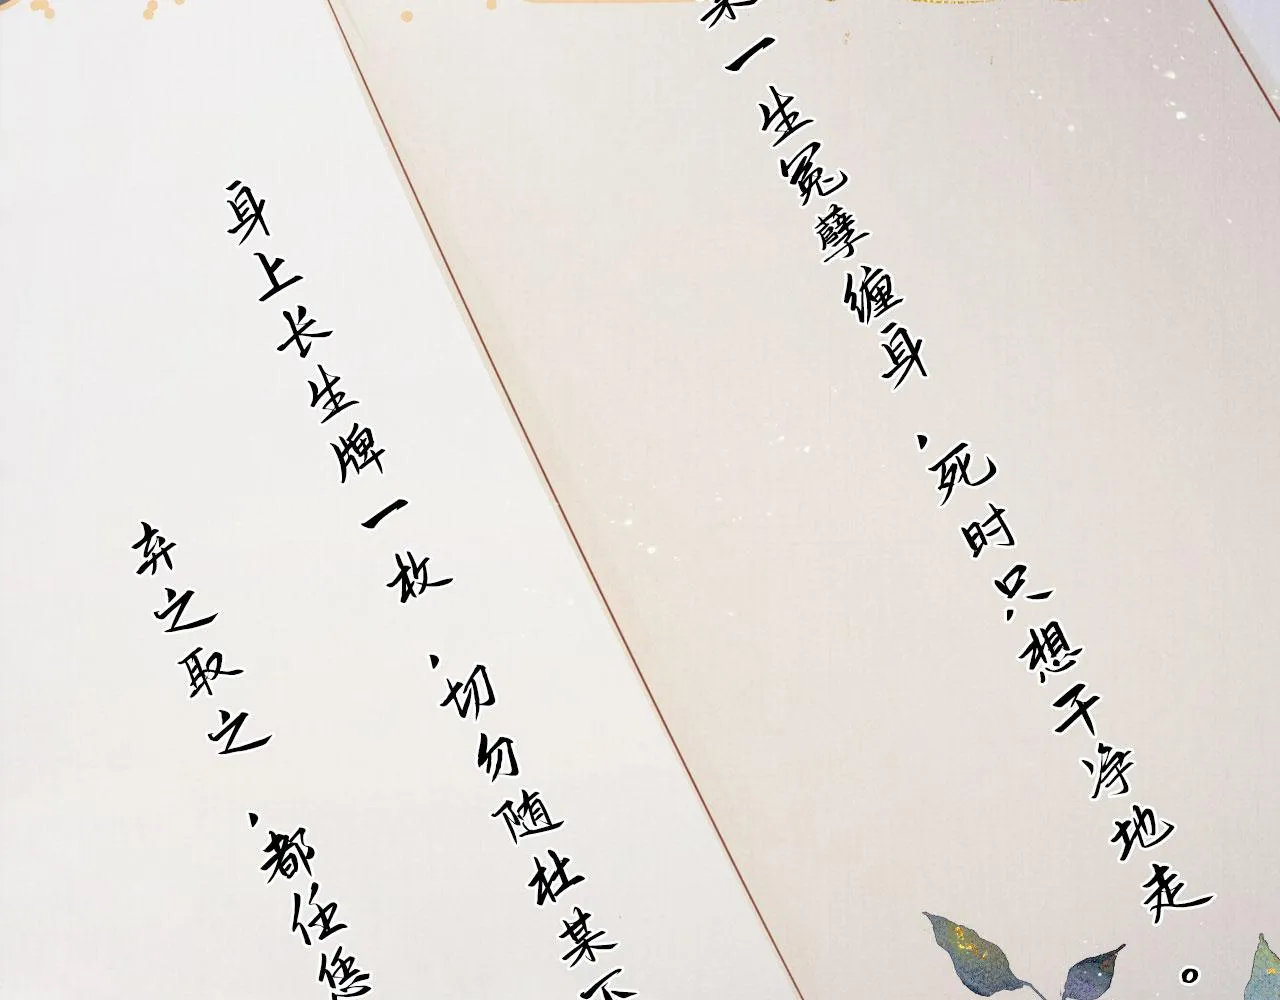 某一生冤孽缠身，死时只想干净地走。
身上长生牌一枚，切勿随杜某不
弃之取之，都任恁